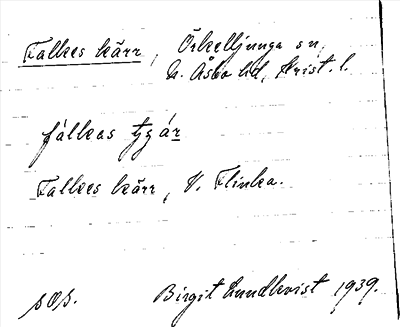 Falkes kärr, Örkelljunga sn,
N. Åsbo hd, Krist. l.
fálkas
Falkes kärr, V. Flinka.
sOs. Birgit Lundkvist 1939.